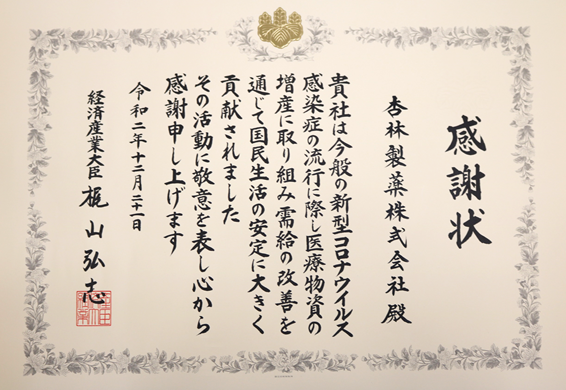 感謝状
杏林製薬株式会社 殿
貴社は今般の新型コロナウイルス
感染症の流行に際し医療物資の
増産に取り組み需給の改善を
通じて国民生活の安定に大きく
貢献されました
その活動に敬意を表し心から
感謝申し上げます
令和二年十二月二十一日
経済産業大臣 梶山弘志